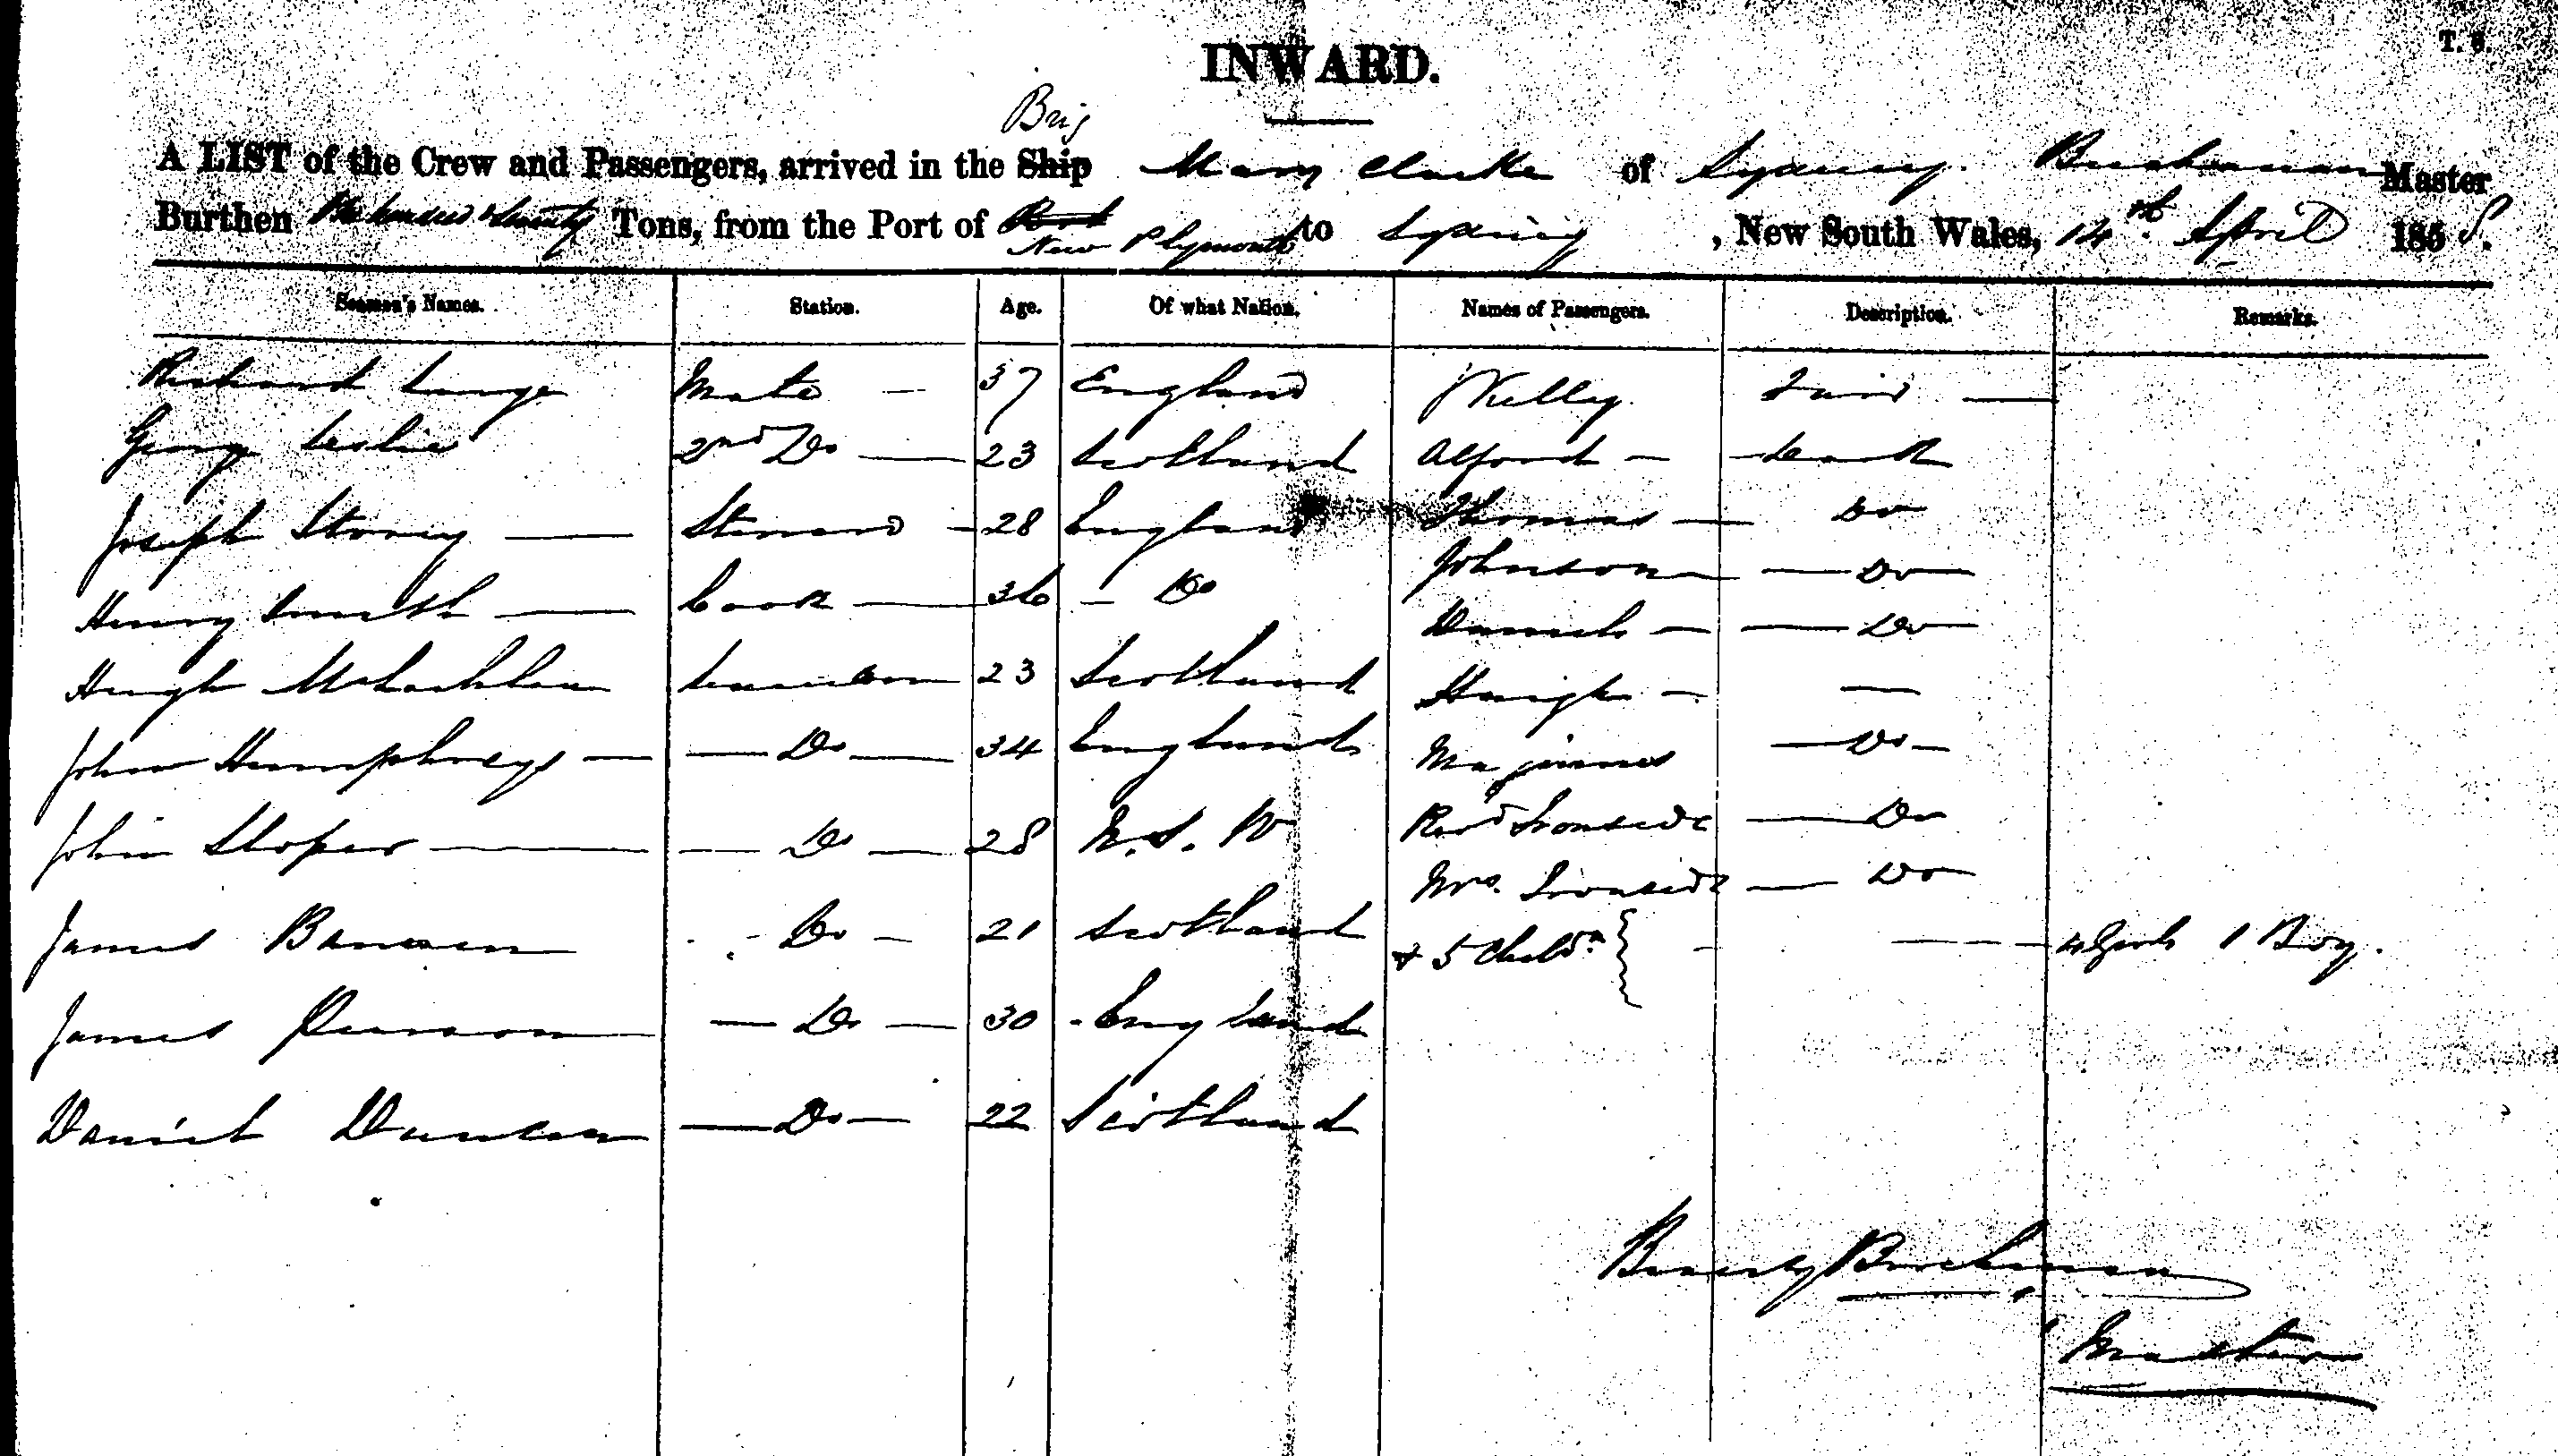 T. 8.
INWARD.
Brig
A LIST of the Crew and Passengers, arrived in the Ship Mary Clarke of Sydney. Buchanan Master
Burthen hundred & Tons, from the Port of New Plymouth to Sydney, New South Wales, 14th April 1858.
Seamen's Names. Station. Age. Of what Nation. Names of Passengers. Description. Remarks.
Richard Mate — 37 England Kelly
George Leslie 2nd Do — 23 Scotland Alford —
Joseph Storey — Steward — 28 England Thomas — Do
Henry Smith — Cook — 36 — Do Johnson — Do —
Hugh McLachlan Seaman 23 Scotland Daniels — — Do —
John Humphreys — — Do — 34 England Haigh — —
John Sloper — — Do — 28 N. S. W — Do —
James — Do — 21 Scotland Revd Ironside — Do
James Pearson — Do — 30 England Mrs. Ironside — Do —
Daniel Duncan — Do — 22 Scotland & 5 Childn — — — — 4 Girls 1 Boy.
Buchanan
Master